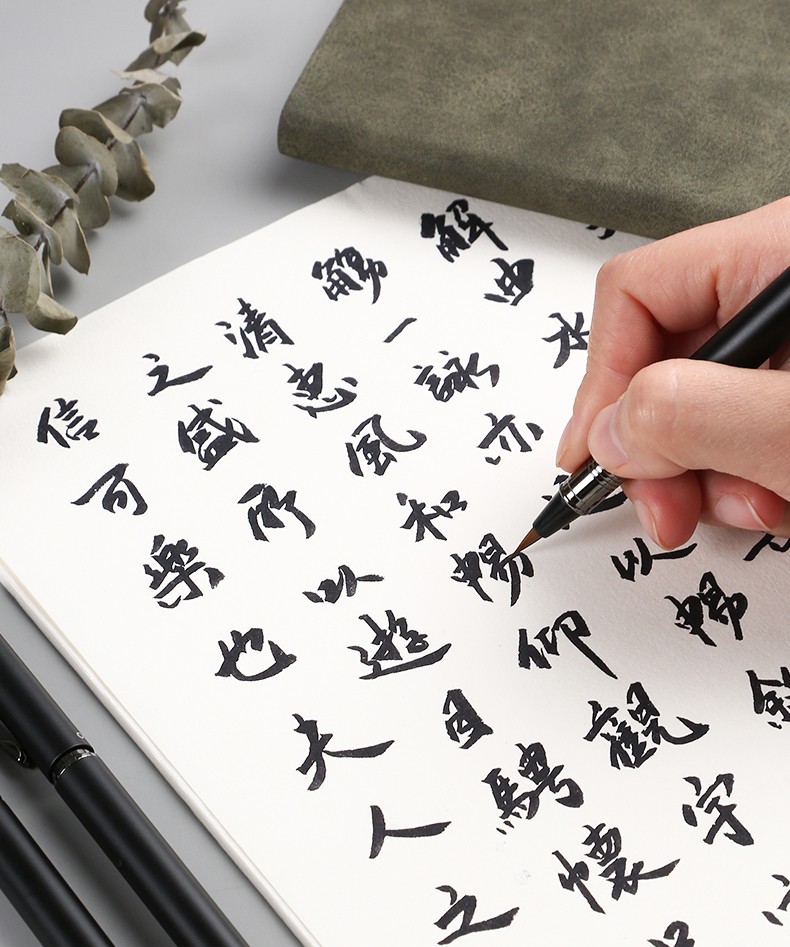 曲水
觴一詠亦以暢敘
清惠風和暢仰觀宇
之盛所以遊目騁懷
信可樂也夫人之